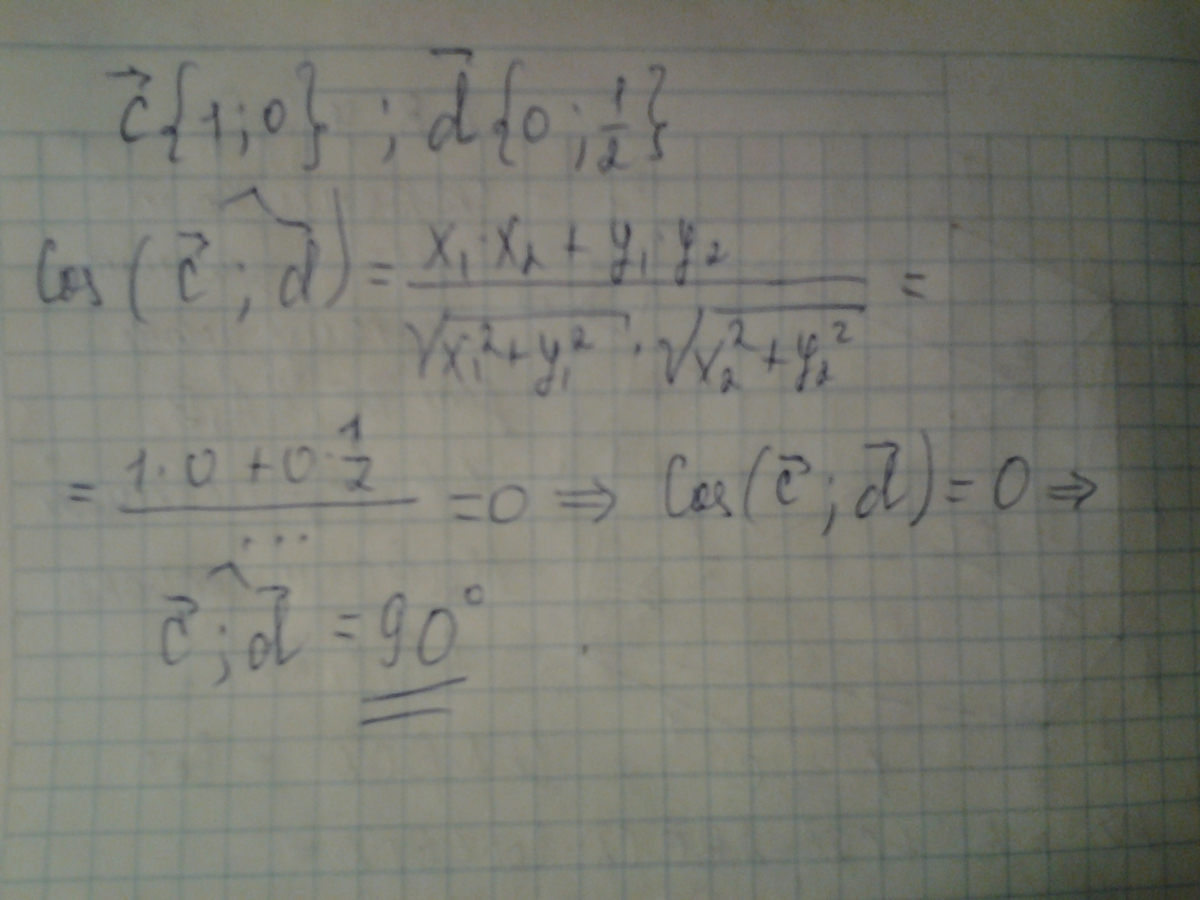 c⃗{1;0} ; d⃗{0;1/2}
Cos(c⃗;d⃗) = (x₁·x₂ + y₁·y₂)/(√(x₁²+y₁²) · √(x₂²+y₂²)) =
= (1·0 + 0·1/2)/... = 0 ⇒ Cos(c⃗;d⃗) = 0 ⇒
c⃗;d⃗ = 90°